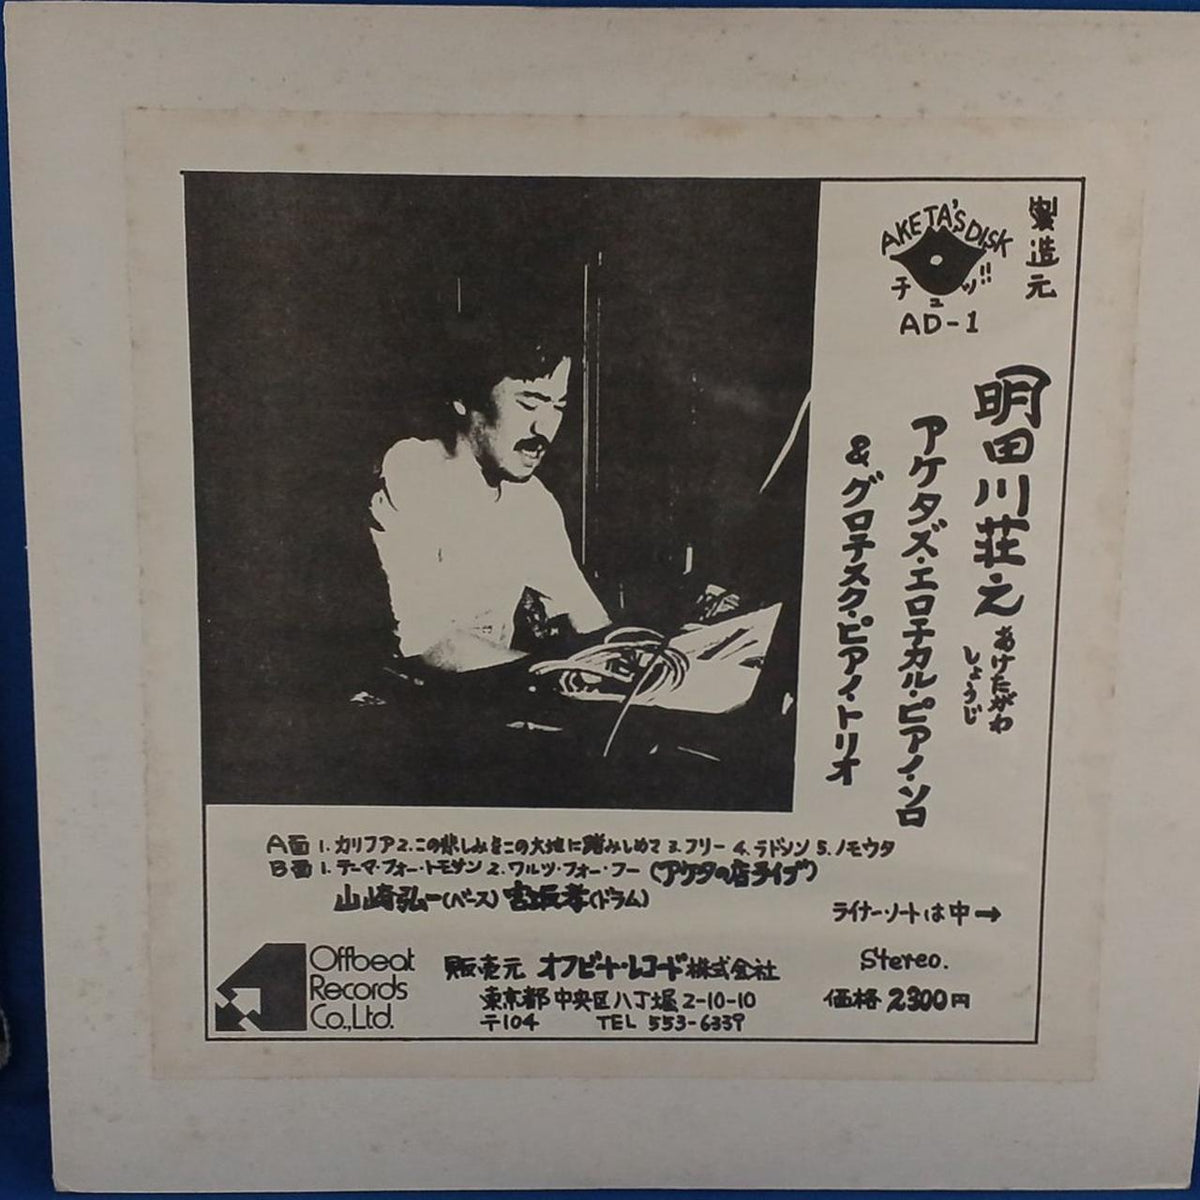 製造元
AKETA'S DISK
チュッ!!
AD-1
明田川荘之
あけたがわ
しょうじ
アケタズ・エロチカル・ピアノ・ソロ
&グロテスク・ピアノ・トリオ
A面 1. カリフア 2. この悲しみをこの大地に踏みしめて 3. フリー 4. ラドシソ 5. ノモウタ
B面 1. テーマ・フォー・トモサン 2. ワルツ・フォー・フー (アケタの店ライブ)
山崎弘一(ベース) 宮坂孝(ドラム)
ライナーノートは中→
Offbeat
Records
Co.,Ltd.
販売元 オフビート・レコード株式会社
東京都中央区八丁堀2-10-10
〒104 TEL 553-6339
Stereo.
価格 2300円